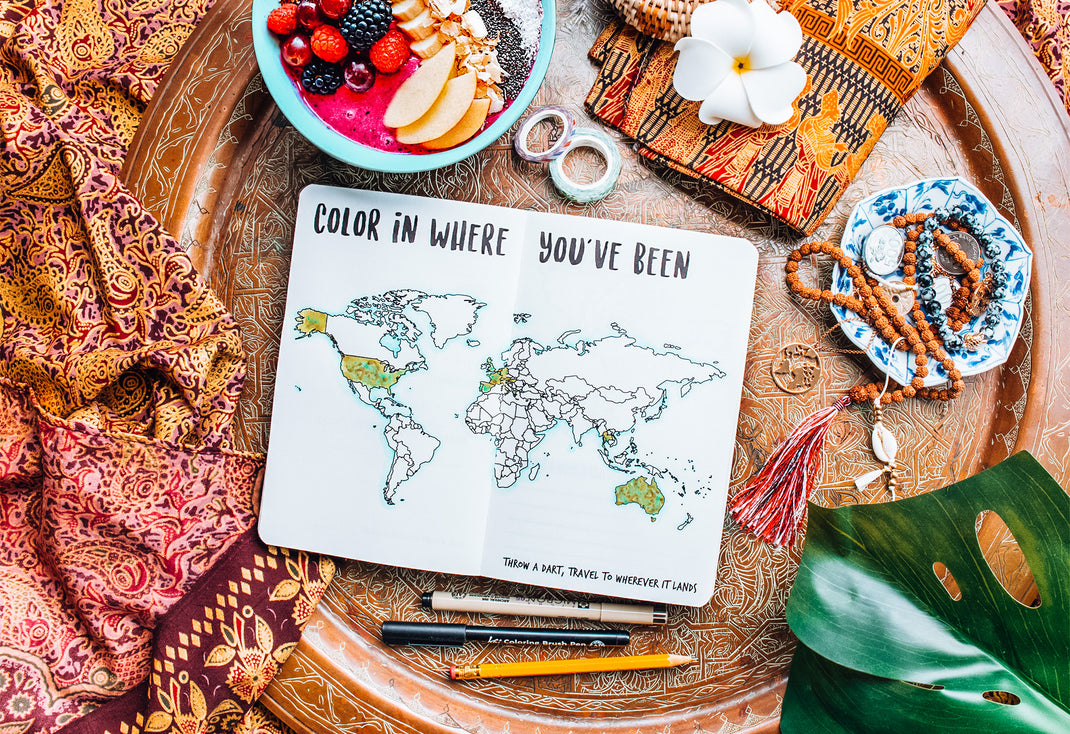 COLOR iN WHERE YOU'VE BEEN
THROW A DART, TRAVEL TO WHEREVER IT LANDS
Coloring Brush Pen